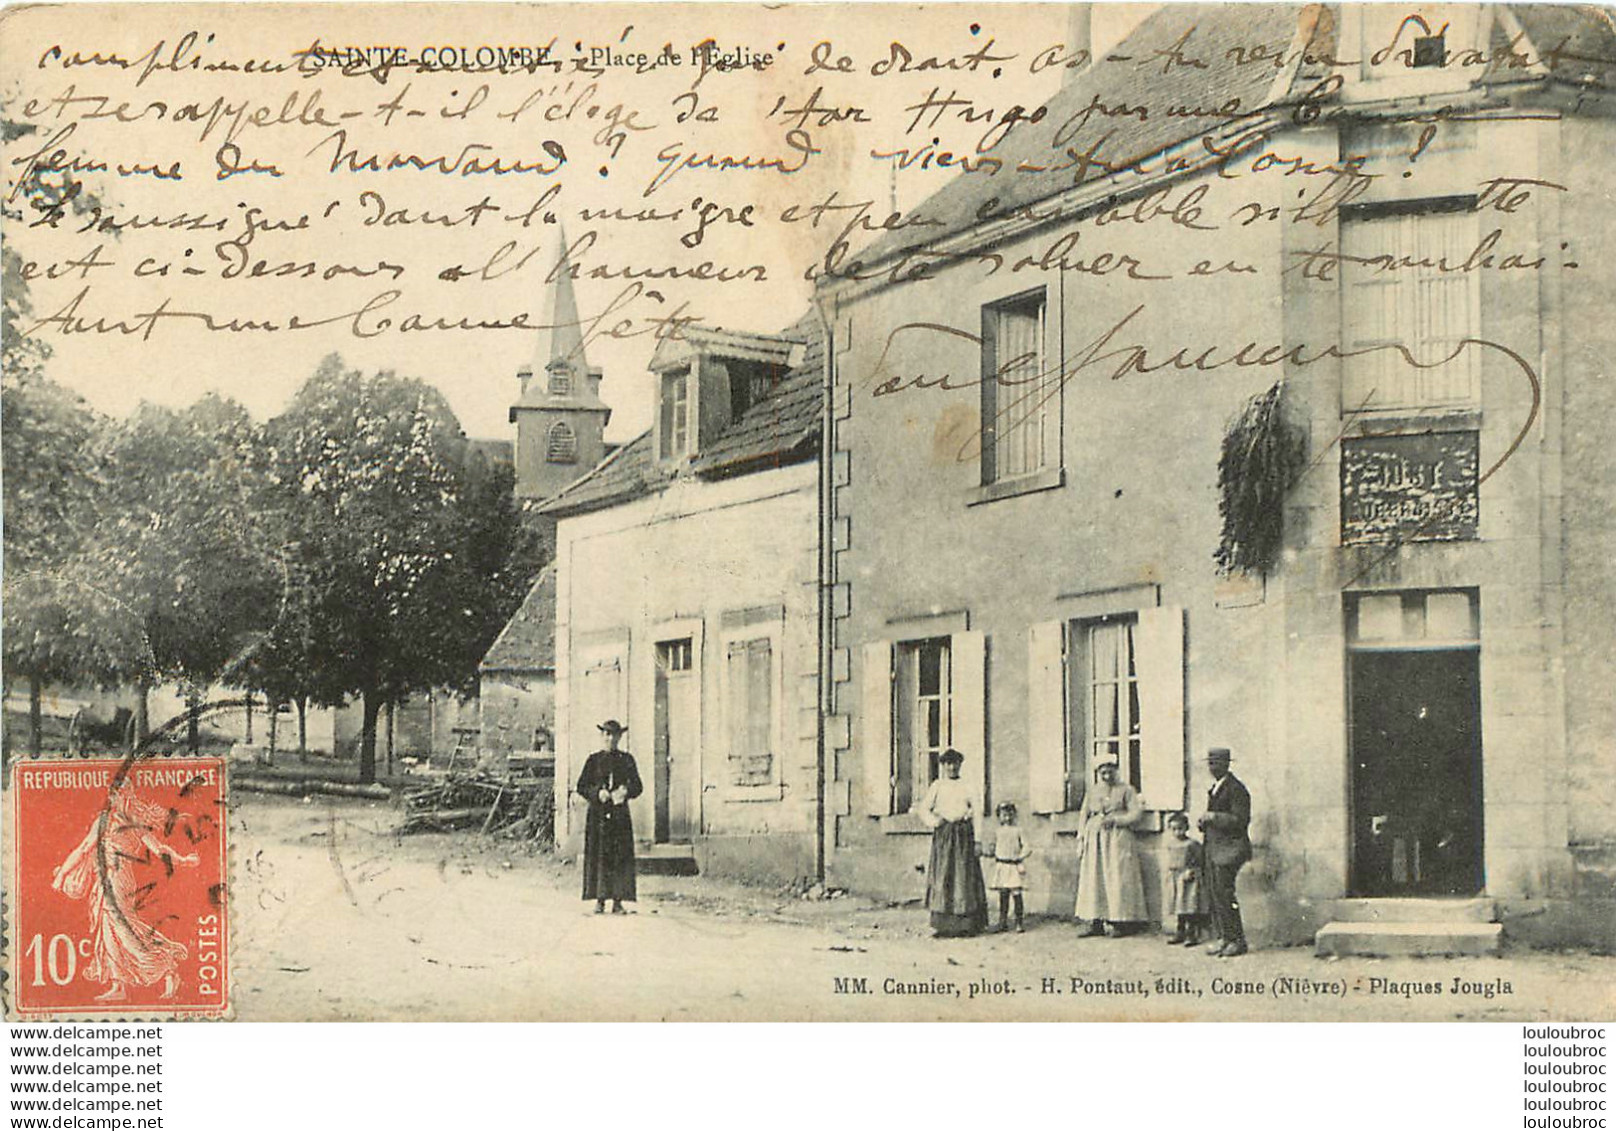 SAINTE-COLOMBE. - Place de l'Eglise
compliments et amitiés à qui de droit. as-tu revu
et se rappelle-t-il l'éloge de Hugo par une bonne
femme du Morvand ? Quand viens-tu à Cosne ?
Le soussigné dont la maigre et peu enviable silhouette
est ci-dessous a l'honneur de te saluer en te souhai-
tant une bonne fête
REPUBLIQUE FRANÇAISE
10c
POSTES
MM. Cannier, phot. - H. Pontaut, édit., Cosne (Nièvre) - Plaques Jougla
www.delcampe.net
www.delcampe.net
www.delcampe.net
www.delcampe.net
www.delcampe.net
www.delcampe.net
louloubroc
louloubroc
louloubroc
louloubroc
louloubroc
louloubroc